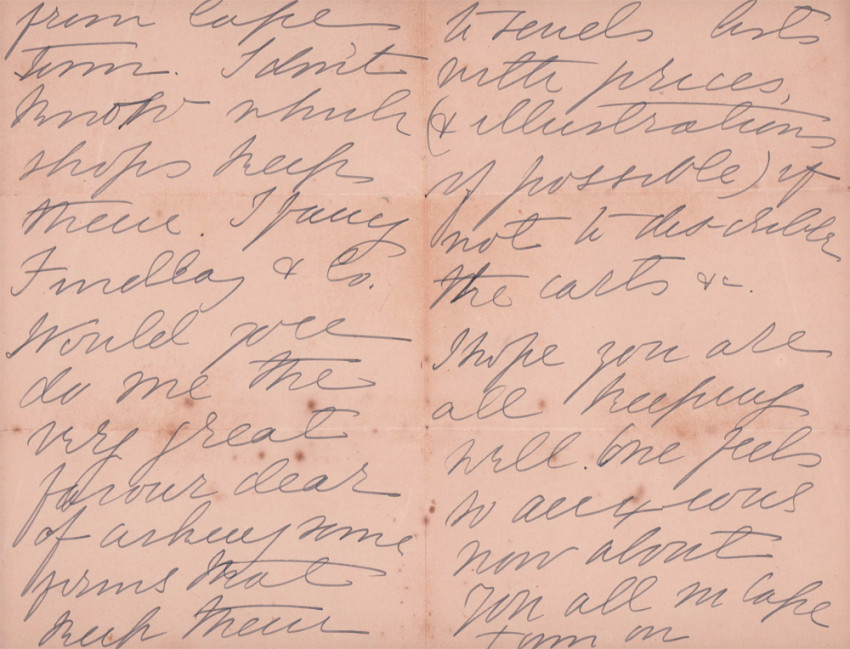 from Cape
Town. I don't
know which
shops keep
them. I fancy
Findlay & Co.
Would you
do me the
very great
favour dear
of asking some
firms that
keep them
to send lists
with prices,
(& illustrations
if possible) if
not to describe
the carts &c.
I hope you are
all keeping
well. One feels
so anxious
now about
you all in Cape
town on